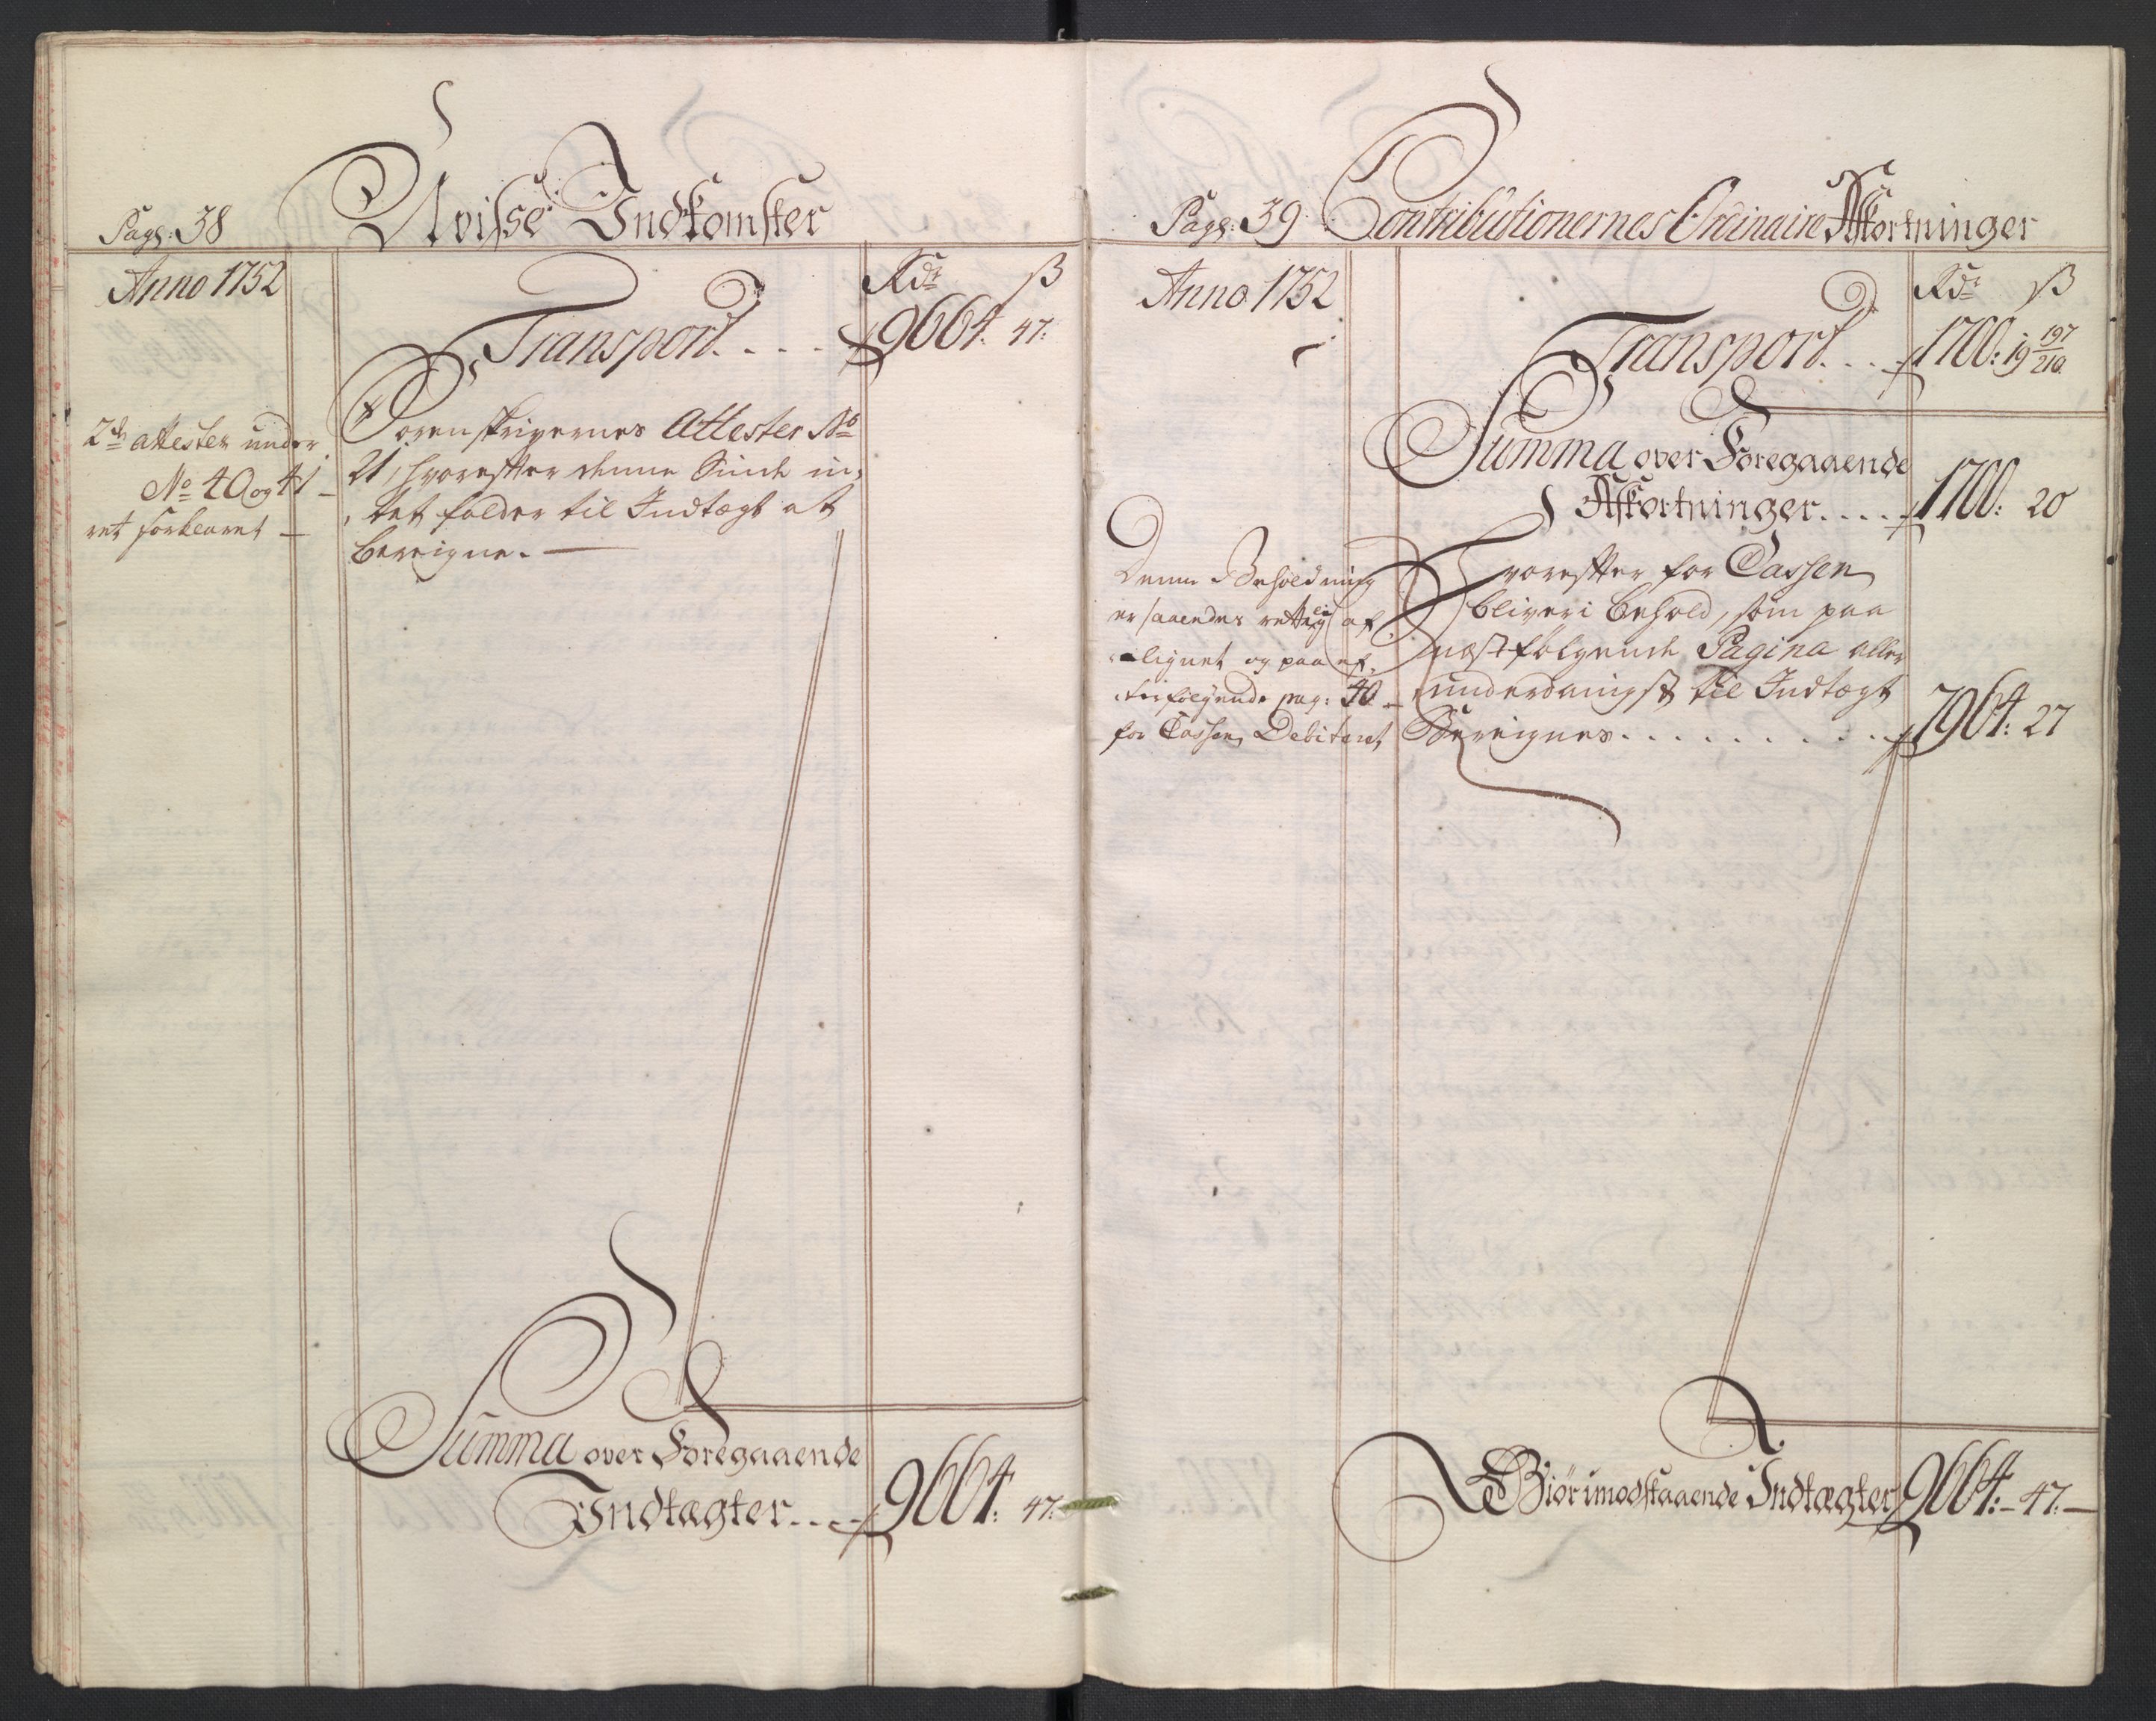 Pag: 38
Uvisse Indkomster
Anno 1752
Rdr ß
Transport. . . . 9664. 47:
2de attester under
No 40 og 41
ret forklaret —
Sorenskrivernes Attester No
21, hvorefter denne Sinde in,
tet falder til Indtægt at
bereigne. —
Summa over Foregaaende
Indtægter. . . . 9664: 47:
Pag: 39
Contributionernes Ordinaire Afkortninger
Anno 1752
Rdr ß
Transport. . . . 1700: 19 197/210
Summa over Foregaaende
Afkortninger. . . . . 1700: 20
Denne Beholdning
er saaledes rettelig af
lignet og paa ef,
terfølgende pag: 40 —
for Cassen Debiteret
Hvorefter for Cassen
bliver i behold, som paa
næstfølgende Pagina aller
underdanigst til Indtægt
Bereignes. . . . . . . . . . 7964: 27
Giør imodstaaende Indtægter 9664:-47:—